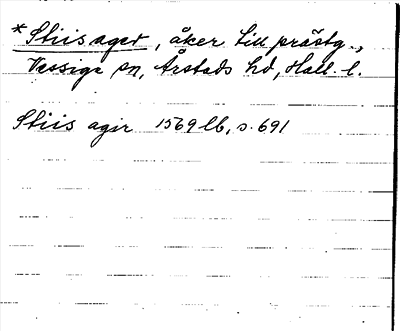 *Stiisager, åker till prästg.,
Vessige sn, Årstads hd, Hall. l.
Stiis agir 1569 lb, s. 691